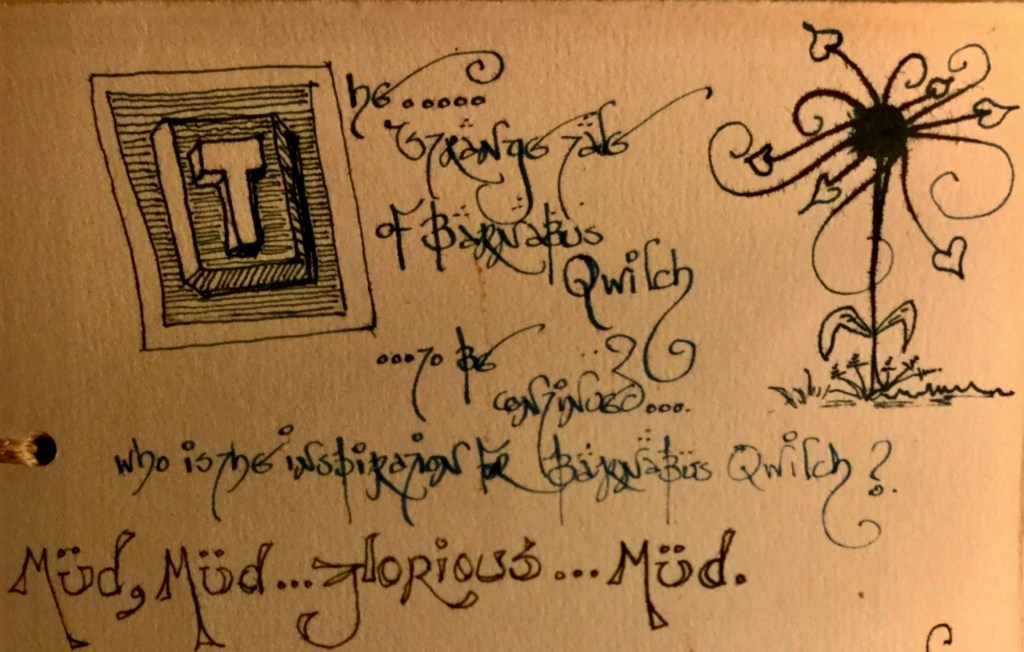 The.....
Strange tale
of Bärnabüs
Qwilch
...to be
continued...
who is the inspiration for Bärnabüs Qwilch?
Müd, Müd...glorious...Müd.